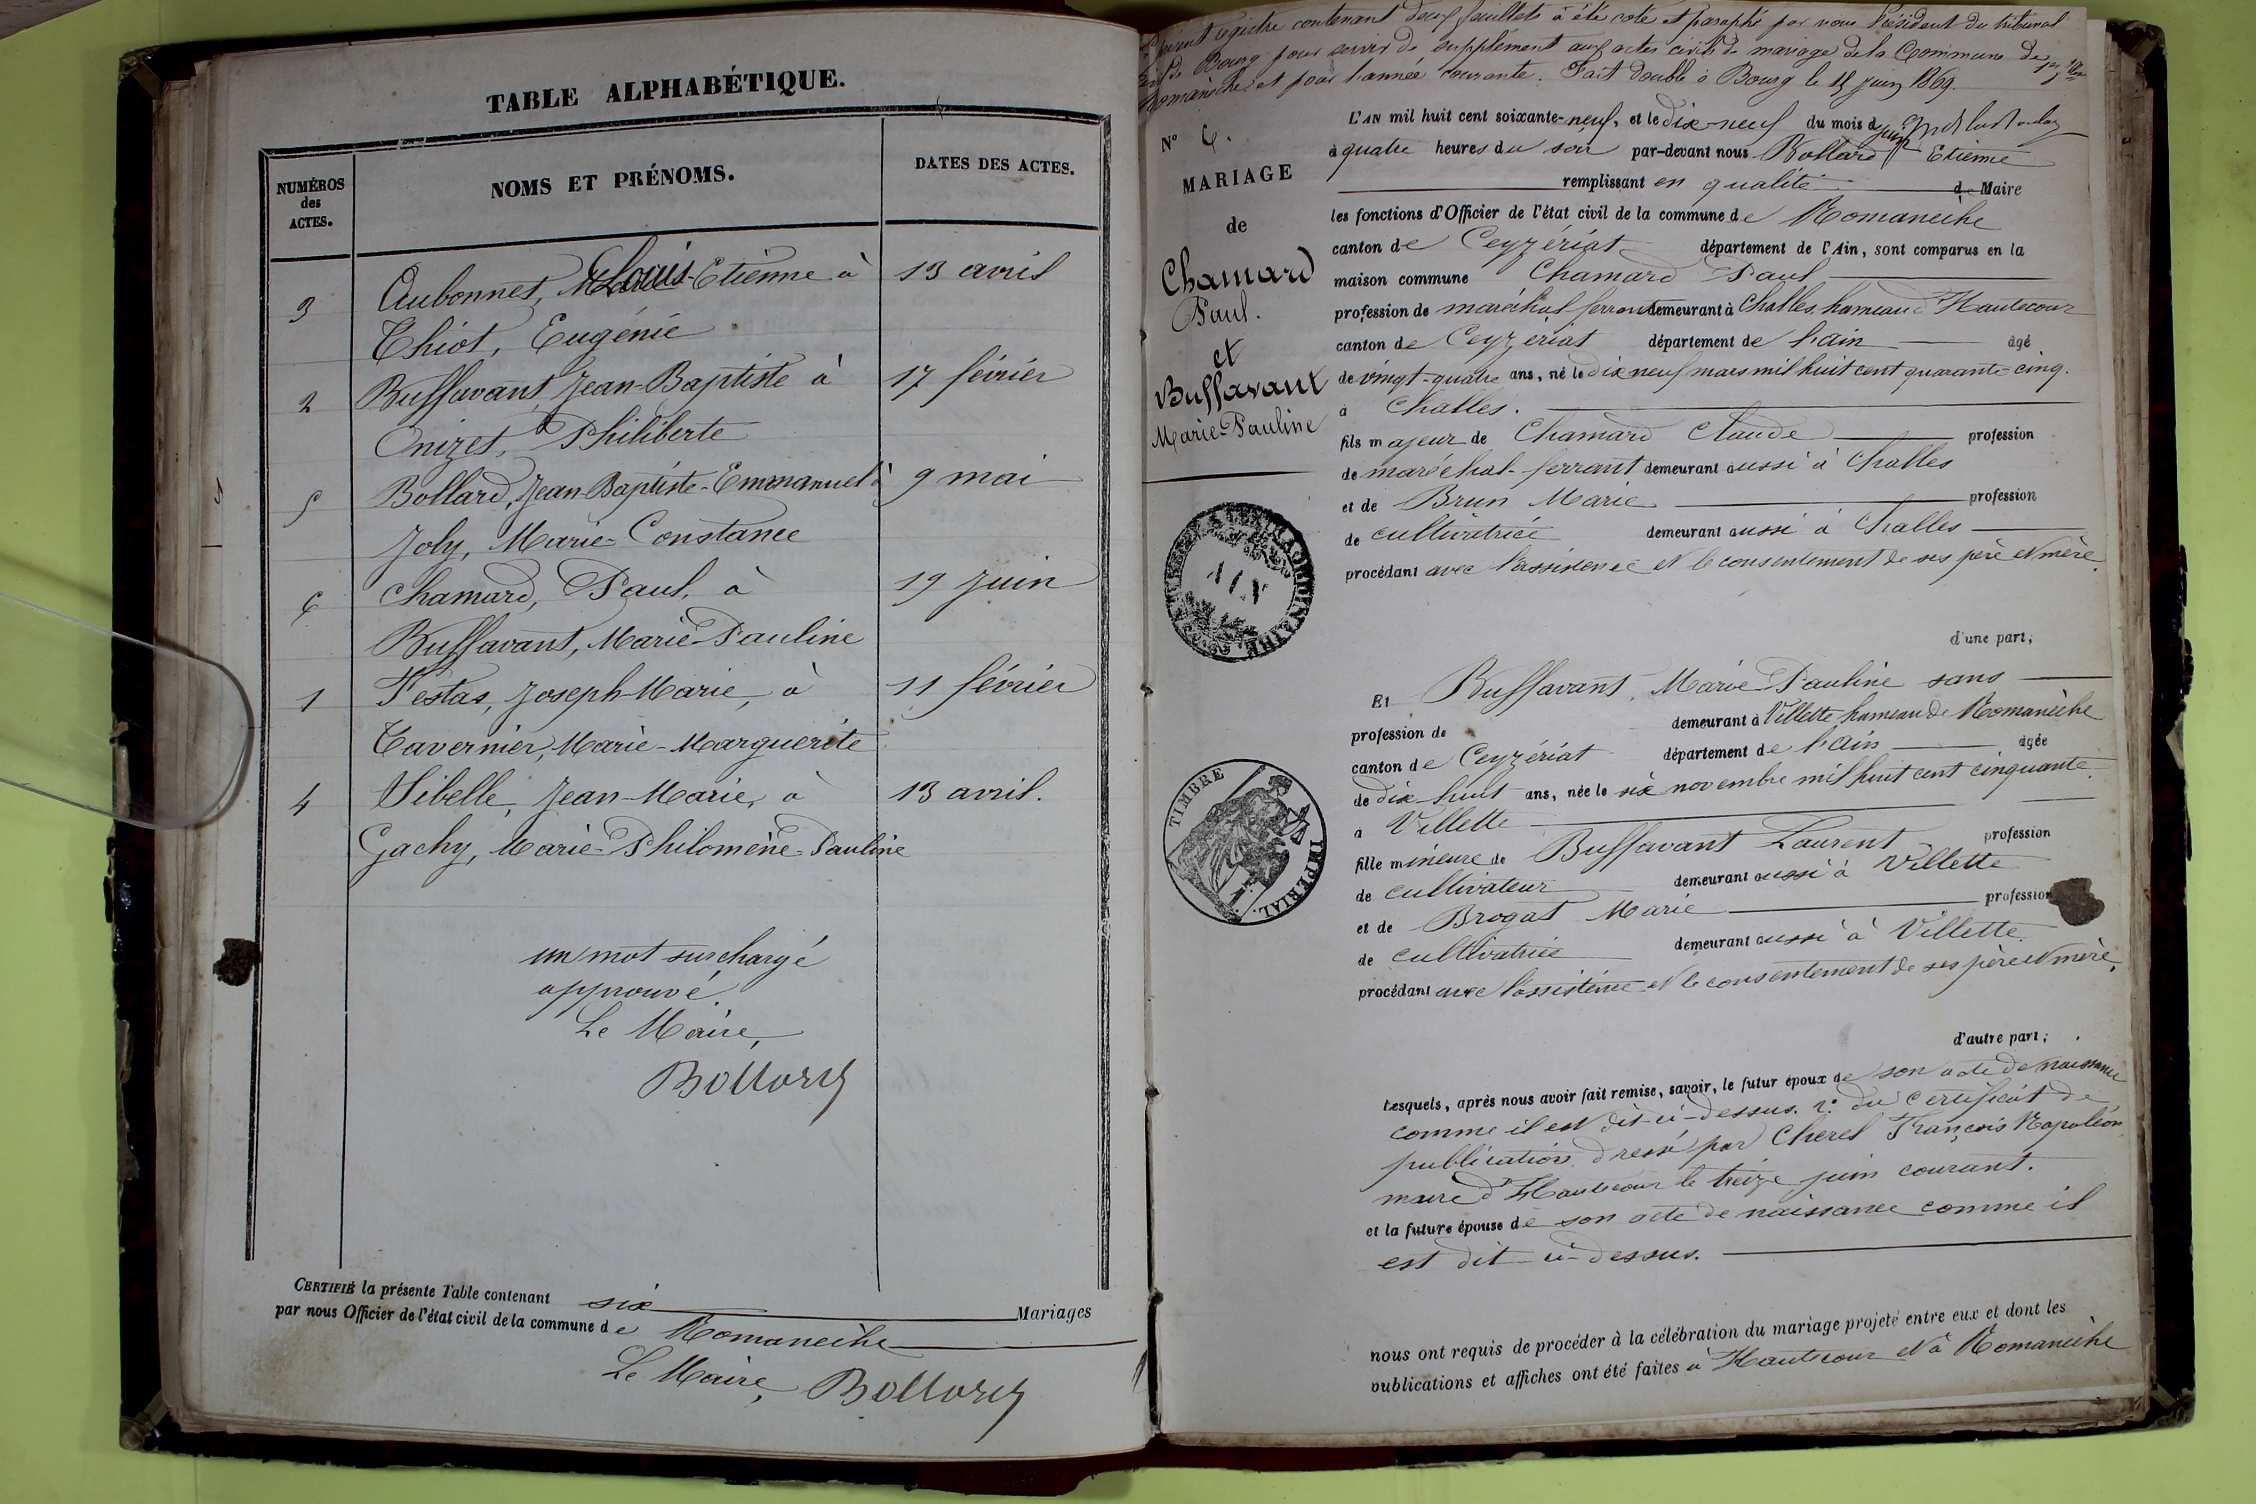 TABLE ALPHABÉTIQUE.
NUMÉROS
des
ACTES.
NOMS ET PRÉNOMS.
DATES DES ACTES.
3 Aubonnet, Louis-Etienne à 13 avril
Thiot, Eugénie
2 Buffavant, Jean-Baptiste à 17 février
Onizet, Philiberte
5 Bollard, Jean-Baptiste-Emmanuel à 9 mai
Joly, Marie-Constance
6 Chamard, Paul, à 19 Juin
Buffavant, Marie-Pauline
1 Festas, Joseph-Marie, à 11 février
Tavernier, Marie-Marguerite
4 Sibelle, Jean-Marie, à 13 avril.
Gachy, Marie-Philomène-Pauline
un mot surchargé
approuvé.
Le Maire,
Bollard
CERTIFIÉ la présente Table contenant six Mariages
par nous Officier de l'état civil de la commune de Romanèche
Le Maire, Bollard
registre contenant deux feuillets a été coté et paraphé par nous Président du tribunal
de Bourg pour servir de supplément aux actes civils de mariage de la Commune de
Romanèche et pour l'année courante. Fait double à Bourg le 15 juin 1869.
N° 6.
MARIAGE
de
Chamard
Paul.
et
Buffavant
Marie-Pauline
L'AN mil huit cent soixante-neuf, et le dix-neuf du mois de juin
à quatre heures du soir par-devant nous Bollard Etienne
remplissant en qualité de Maire
les fonctions d'Officier de l'état civil de la commune de Romanèche
canton de Ceyzériat département de l'Ain, sont comparus en la
maison commune Chamard Paul
profession de maréchal ferrant demeurant à Challes, hameau d'Hautecour
canton de Ceyzériat département de l'ain âgé
de vingt-quatre ans, né le dix neuf mars mil huit cent quarante-cinq.
à Challes.
fils majeur de Chamard Claude profession
de maréchal-ferrant demeurant aussi à Challes
et de Brun Marie profession
de cultivatrice demeurant aussi à Challes
procédant avec l'assistance et le consentement de ses père et mère.
d'une part;
Et Buffavant, Marie-Pauline sans
profession de demeurant à Villette hameau de Romanèche
canton de Ceyzériat département de l'ain âgée
de dix-huit ans, née le six novembre mil huit cent cinquante.
à Villette
fille mineure de Buffavant Laurent profession
de cultivateur demeurant aussi à Villette
et de Brogat Marie profession
de cultivatrice demeurant aussi à Villette.
procédant avec l'assistance et le consentement de ses père et mère.
d'autre part;
TIMBRE IMPÉRIAL.
Lesquels, après nous avoir fait remise, savoir, le futur époux de son acte de naissance
comme il est dit ci-dessus. 2° du certificat de
publication dressé par Cherel François Napoléon
maire d'Hautecour le treize juin courant.
et la future épouse de son acte de naissance comme il
est dit ci-dessus.
nous ont requis de procéder à la célébration du mariage projeté entre eux et dont les
publications et affiches ont été faites à Hautecour et à Romanèche